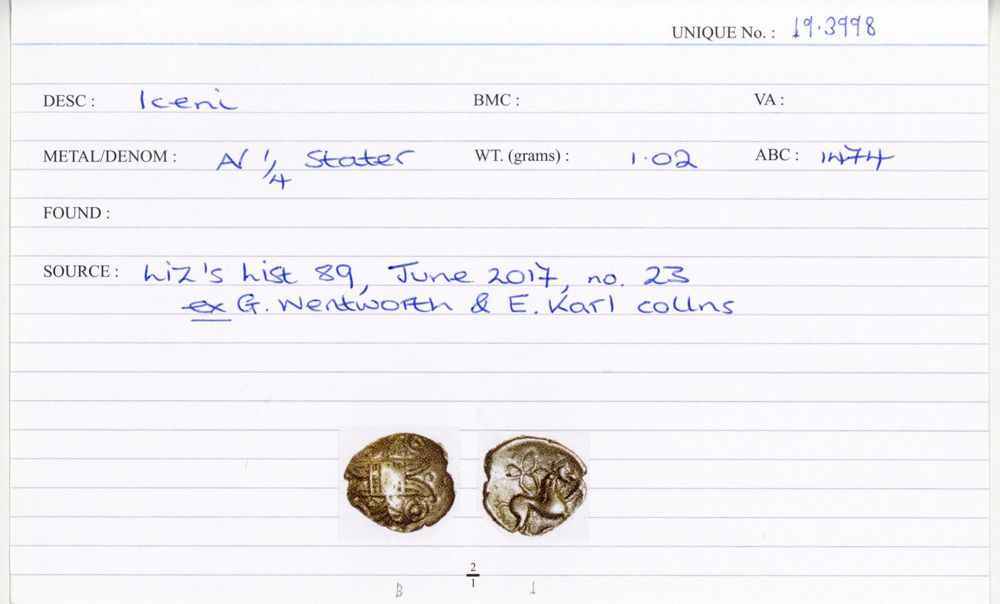 UNIQUE No. : 19.3998
DESC : Iceni BMC : VA :
METAL/DENOM : AV 1/4 Stater WT. (grams) : 1.02 ABC : 1474
FOUND :
SOURCE : Liz's List 89, June 2017, no. 23
ex G. Wentworth & E. Karl collns
2
1
B 1